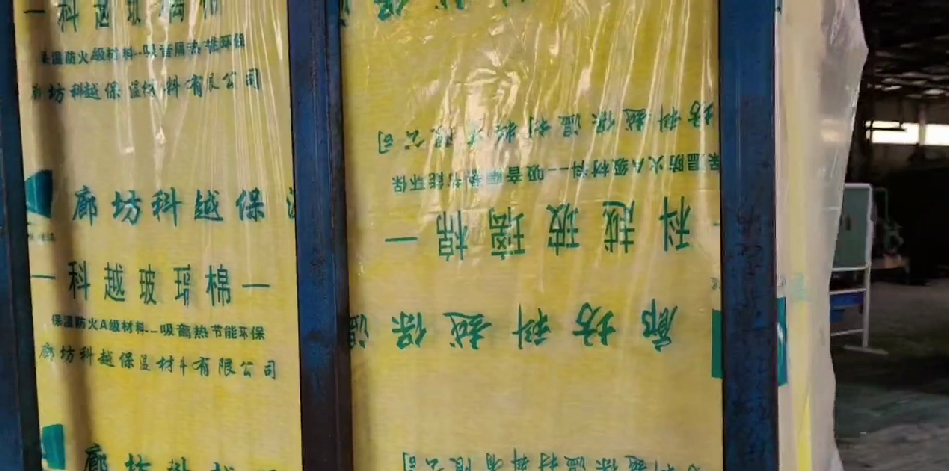 科越玻璃棉
保温防火A级材料--吸音隔热节能环保
廊坊科越保温材料有限公司
廊坊科越保温
— 科越玻璃棉 —
保温防火A级材料--吸音隔热节能环保
廊坊科越保温材料有限公司
廊坊科越保
坊科越保温材料有限公司
保温防火A级材料--吸音隔热节能环保
— 科越玻璃棉 —
廊坊科越保温
科越保温材料有限公司